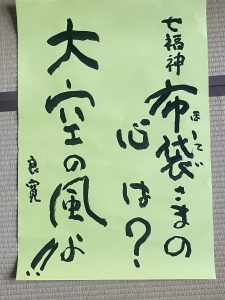 七福神
布袋さまの
ほてい
心は?
大空の風よ!!
良寛